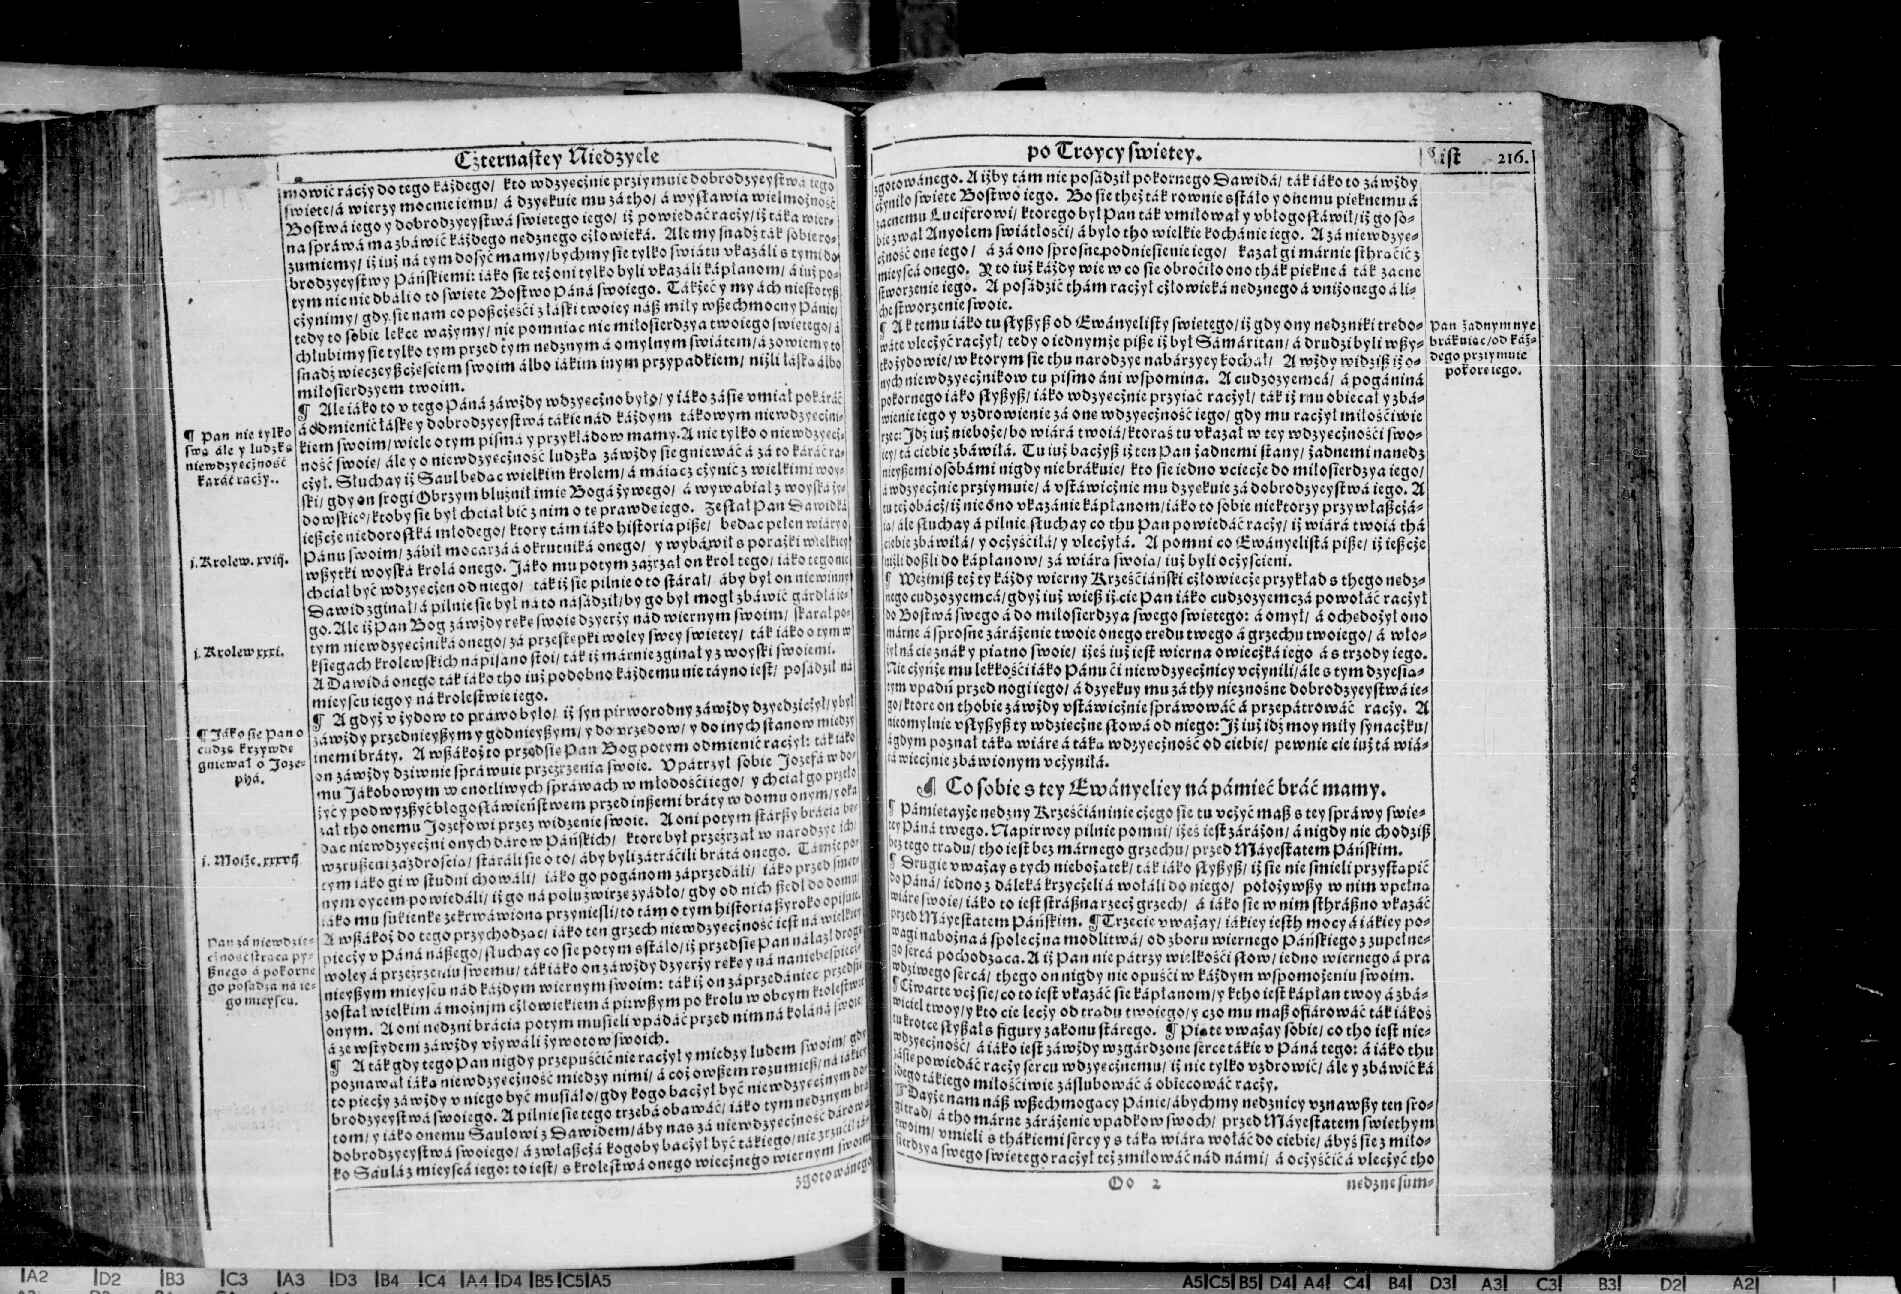 Cżternastey Niedzyele
mowić racży do tego każdego/ kto wdzyecżnie przyimuie dobrodzyeystwá iego
swiete/ á wierzy mocnie iemu/ á dzyekuie mu zá tho/ á wysławia wielmożność
Bostwá iego y dobrodzyeystwá swietego iego/ iż powiedáć racży/ iż táka wier-
na spráwá ma zbáwić każdego nedznego cżłowieká. Ale my snadź ták sobie ro-
zumiemy/ iż iuż ná tym dosyć mamy/ bychmy sie tylko swiátu vkazáli s tymi do-
brodzyeystwy Páńskiemi: iáko sie też oni tylko byli vkazáli kápłanom/ á iuż po-
tym nic nie dbáli o to swiete Bostwo Páná swoiego. Tákżeć y my ách niestotyß
cżynimy/ gdy sie nam co poßcżęści z łáski twoiey náß miły wßechmocny Pánie/
tedy to sobie lekce ważymy/ nie pomniac nic miłosierdzya twoiego swietego/ á
chlubimy sie tylko tym przed tym nedznym á omylnym swiátem/ á zowiemy to
snadź wiecżeyßcżesciem swoim álbo iákim inym przypadkiem/ niżli łáská álbo
miłosierdzyem twoim.
¶ Ale iáko to v tego Páná záwżdy wdzyecżno było/ y iáko zásie vmiał pokáráć
á odmienić łáske y dobrodzyeystwá tákie nád każdym tákowym niewdzyecżni-
kiem swoim/ wiele o tym pismá y przykładow mamy. A nie tylko o niewdzyecż-
ność swoie/ ále y o niewdzyecżność ludzka záwżdy sie gniewáć á zá to káráć ra-
cżył. Słuchay iż Saul bedac wielkim krolem/ á máiacz cżynić z wielkimi woy-
ski/ gdy on srogi Obrzym bluźnił imie Bogá żywego/ á wywabiał z woyská ży-
dowskieº/ ktoby sie był chciał bić z nim o te prawde iego. Zesłał Pan Dawidká
ießcże niedorostká młodego/ ktory tám iáko historia piße/ bedac pełen wiáry o
Pánu swoim/ zábił mocarzá á okrutniká onego/ y wybáwił s porażki wielkiey
wßytki woyská krolá onego. Jáko mu potym zázrzał on krol tego/ iáko tego nie
chciał być wdzyecżen od niego/ ták iż sie pilnie o to stárał/ áby był on niewinny
Dawid zginał/ á pilnie sie był ná to násádził/ by go był mogł zbáwić gárdłá ie-
go. Ale iż Pan Bog záwżdy reke swoie dzyerży nád wiernym swoim/ skarał po-
tym niewdzyecżniká onego/ zá przestepki woley swey swietey/ ták iáko o tym w
ksiegach krolewskich nápisano stoi/ ták iż márnie zginał y z woyski swoiemi.
A Dawidá onego ták iáko tho iuż podobno káżdemu nie táyno iest/ posádził ná
mieyscu iego y ná krolestwie iego.
¶ A gdyż v żydow to práwo było/ iż syn pirworodny záwżdy dzyedzicżył/ y był
záwżdy przednieyßym y godnieyßym/ y do vrzedow/ y do inych stanow miedzy
inemi bráty. A wßákoż to przedsie Pan Bog potym odmienić racżył: ták iáko
on záwżdy dziwnie spráwuie przeźrzenia swoie. Vpátrzył sobie Jozefá w do-
mu Jákobowym w cnotliwych spráwach w młodości iego/ y chciał go przeło-
żyć y podwyzßyć błogosłáwieństwem przed inßemi bráty w domu onym/ y oka
zał tho onemu Jozefowi przez widzenie swoie. A oni potym stárßy brácia bę-
dac niewdzyecżni onych dárow Páńskich/ ktore był przeźrzał w narodzye ich/
wzrußeni zazdrościa/ stáráli sie o to/ áby byli zátráćili brátá onego. Támże po-
tym iáko gi w studni chowáli/ iáko go pogánom záprzedáli/ iáko przed smet-
nym oycem powiedáli/ iż go ná polu źwirze zyádło/ gdy od nich ßedł do domu/
iáko mu sukienke zekrwáwiona przynieśli/ to tám o tym historia ßyroko opisuie.
A wßákoż do tego przychodzac/ iáko ten grzech niewdzyecżność iest ná wielkiey
piecży v Páná náßego/ słuchay co sie potym sstáło/ iż przedsie Pan nálazł drogi
woley á przeźrzeniu swemu/ ták iáko on záwżdy dzyerży reke y ná naniebespiecż-
nieyßym mieyscu nád káżdym wiernym swoim: ták iż on záprzedániec przedsie
został wielkim á możnym cżłowiekiem á pirwßym po krolu w obcym krolestwie
onym. A oni nedzni brácia potym musieli vpádáć przed nim ná koláná swoie
á ze wstydem záwżdy vżywáli żywotow swoich.
¶ A ták gdy tego Pan nigdy przepuścić nie racżył y miedzy ludem swoim/ gdy
poznawał iáka niewdzyecżność miedzy nimi/ á coż owßem rozumieß/ ná iákiey
to piecży záwżdy v niego być musiáło/ gdy kogo bacżył być niewdzyecżnym do-
brodzyeystwá swoiego. A pilnie sie tego trzebá obawáć/ iáko tym nedznym brá
tom/ y iáko onemu Saulowi z Dawidem/ áby nas zá niewdzyecżność dárow á
dobrodzyeystwá swoiego/ á zwłaßcżá kogoby bacżył być tákiego/ nie zrzucił iá-
ko Saulá z mieyscá iego: to iest/ s krolestwá onego wiecżnego wiernym swoim
zgotowánego
¶ Pan nie tylko
swa ále y ludzka
niewdzyecżność
káráć racży..
j. Krolew. xviij.
j. Krolew xxxi.
¶ Jáko sie Pan o
cudze krzywde
gniewał o Joze-
phá.
j. Moiże. xxxvij
Pan zá niewdzie-
cżność strąca py-
ßnego á pokorne
go posadza ná ie-
go mieyscu.
po Troycy swietey.
List 216.
zgotowánego. A iżby tám nie posádził pokornego Dawidá/ ták iáko to záwżdy
cżyniło swiete Bostwo iego. Bo sie też ták rownie sstáło y onemu pieknemu á
zacnemu Luciferowi/ ktorego był Pan ták vmiłował y vbłogosłáwił/ iż go so-
bie zwał Anyołem swiátłości/ á było tho wielkie kochánie iego. A zá niewdzye-
cżność one iego/ á zá ono sprosne podniesienie iego/ kazał gi márnie sthráćić z
mieyscá onego. Y to iuż káżdy wie w co sie obroćiło ono thák piekne á ták zacne
stworzenie iego. A posádzić thám racżył cżłowieká nedznego á vniżonego á li-
che stworzenie swoie.
¶ A k temu iáko tu słyßyß od Ewányelisty swietego/ iż gdy ony nedzniki tredo-
wáte vlecżyć racżył/ tedy o iednymże piße iż był Sámáritan/ á drudzi byli wßy-
tko żydowie/ w ktorym sie thu narodzye nabárzyey kochał/ A wżdy widziß iż o-
nych niewdzyecżnikow tu pismo áni wspomina. A cudzozyemcá/ á pogániná
pokornego iáko słyßyß/ iáko wdzyecżnie przyiąć racżył/ ták iż mu obiecał y zbá-
wienie iego y vzdrowienie zá one wdzyecżność iego/ gdy mu racżył miłościwie
rzec: Idź iuż nieboże/ bo wiárá twoiá/ ktoraś tu vkazał w tey wdzyecżności swo-
iey/ tá ciebie zbáwiłá. Tu iuż bacżyß iż ten Pan żadnemi stany/ żadnemi nanedz
nieyßemi osobámi nigdy nie brákuie/ kto sie iedno vciecże do miłosierdzya iego/
á wdzyecżnie przyimuie/ á vstáwicżnie mu dzyekuie zá dobrodzyeystwá iego. A
tu też obácż/ iż nie ono vkazánie kápłanom/ iáko to sobie niektorzy przywłaßcżá-
ia/ ále słuchay á pilnie słuchay co thu Pan powiedáć racży/ iż wiárá twoiá thá
ciebie zbáwiłá/ y ocżyściłá/ y vlecżyłá. A pomni co Ewányelistá piße/ iż ießcże
niżli doßli do kápłanow/ zá wiára swoia/ iuż byli ocżyścieni.
¶ Weźmiß też ty káżdy wierny Krześćiáński cżłowiecże przykład s thego nedz-
nego cudzozyemcá/ gdyż iuż wieß iż cie Pan iáko cudzozyemczá powołáć racżył
do Bostwá swego á do miłosierdzya swego swietego: á omył/ á ochedożył ono
márne á sprosne záráżenie twoie onego tredu twego á grzechu twoiego/ á wło-
żył ná cie znák y piatno swoie/ iżeś iuż iest wierna owiecżká iego á s trzody iego.
Nie cżyńże mu lekkości iáko Pánu ći niewdzyecżnicy vcżynili/ ále s tym dzyesia-
tym vpadń przed nogi iego/ á dzyekuy mu zá thy nieznośne dobrodzyeystwá ie-
go/ ktore on thobie záwżdy vstáwicżnie spráwowáć á przepátrowáć racży. A
nieomylnie vsłyßyß ty wdziecżne słowá od niego: Iż iuż idź moy miły synacżku/
á gdym poznał táka wiáre á táka wdzyecżność od ciebie/ pewnie cie iuż tá wiá-
rá wiecżnie zbáwionym vcżyniłá.
¶ Co sobie s tey Ewányeliey ná pámieć bráć mamy.
¶ Pámietayże nedzny Krześćiáninie cżego sie tu vcżyć maß s tey spráwy swie-
tey Páná twego. Napirwey pilnie pomni/ iżeś iest záráżon/ á nigdy nie chodziß
bez tego tradu/ tho iest bez márnego grzechu/ przed Máyestatem Páńskim.
¶ Drugie vważay s tych niebożatek/ ták iáko słyßyß/ iż sie nie śmieli przystápić
do Páná/ iedno z dáleká krzycżeli á wołáli do niego/ położywßy w nim vpełna
wiáre swoie/ iáko to iest stráßna rzecż grzech/ á iáko sie w nim sthráßno vkazáć
przed Máyestatem Páńskim. ¶ Trzecie vważay/ iákiey iesth mocy á iákiey po-
wagi nabożna á społecżna modlitwá/ od zboru wiernego Páńskiego z zupełne-
go sercá pochodzaca. A iż Pan nie pátrzy wielkości słow/ iedno wiernego á pra
wdziwego sercá/ thego on nigdy nie opuści w káżdym wspomożeniu swoim.
¶ Czwarte vcż sie/ co to iest vkazáć sie kápłanom/ y ktho iest kápłan twoy á zbá-
wiciel twoy/ y kto cie lecży od tradu twoiego/ y czo mu maß ofiárowáć ták iákoś
tu krotce słyßał s figury zakonu stárego. ¶ Piate vważay sobie/ co tho iest nie-
wdzyecżność/ á iáko iest záwżdy wzgárdzone serce tákie v Páná tego: á iáko thu
zásie powiedáć racży sercu wdzyecżnemu/ iż nie tylko vzdrowić/ ále y zbáwić ká
żdego tákiego miłościwie záslubowáć á obiecowáć racży.
¶ Dayże nam náß wßechmogacy Pánie/ ábychmy nedznicy vznawßy ten sro-
gi trad/ á tho márne záráżenie vpadkow swoch/ przed Máyestatem swiethym
twoim/ vmieli s thákiemi sercy y s táka wiára wołáć do ciebie/ ábyś sie z miło-
sierdzya swego swietego racżył też zmiłowáć nád námi/ á ocżyścić á vlecżyć tho
Oo 2
nedzne sum-
Pan żadnym nye
brákuiac/ od káż-
dego przyimuie
pokore iego.
A2 D2 B3 C3 A3 D3 B4 C4 A4 D4 B5 C5 A5
A5 C5 B5 D4 A4 C4 B4 D3 A3 C3 B3 D2 A2